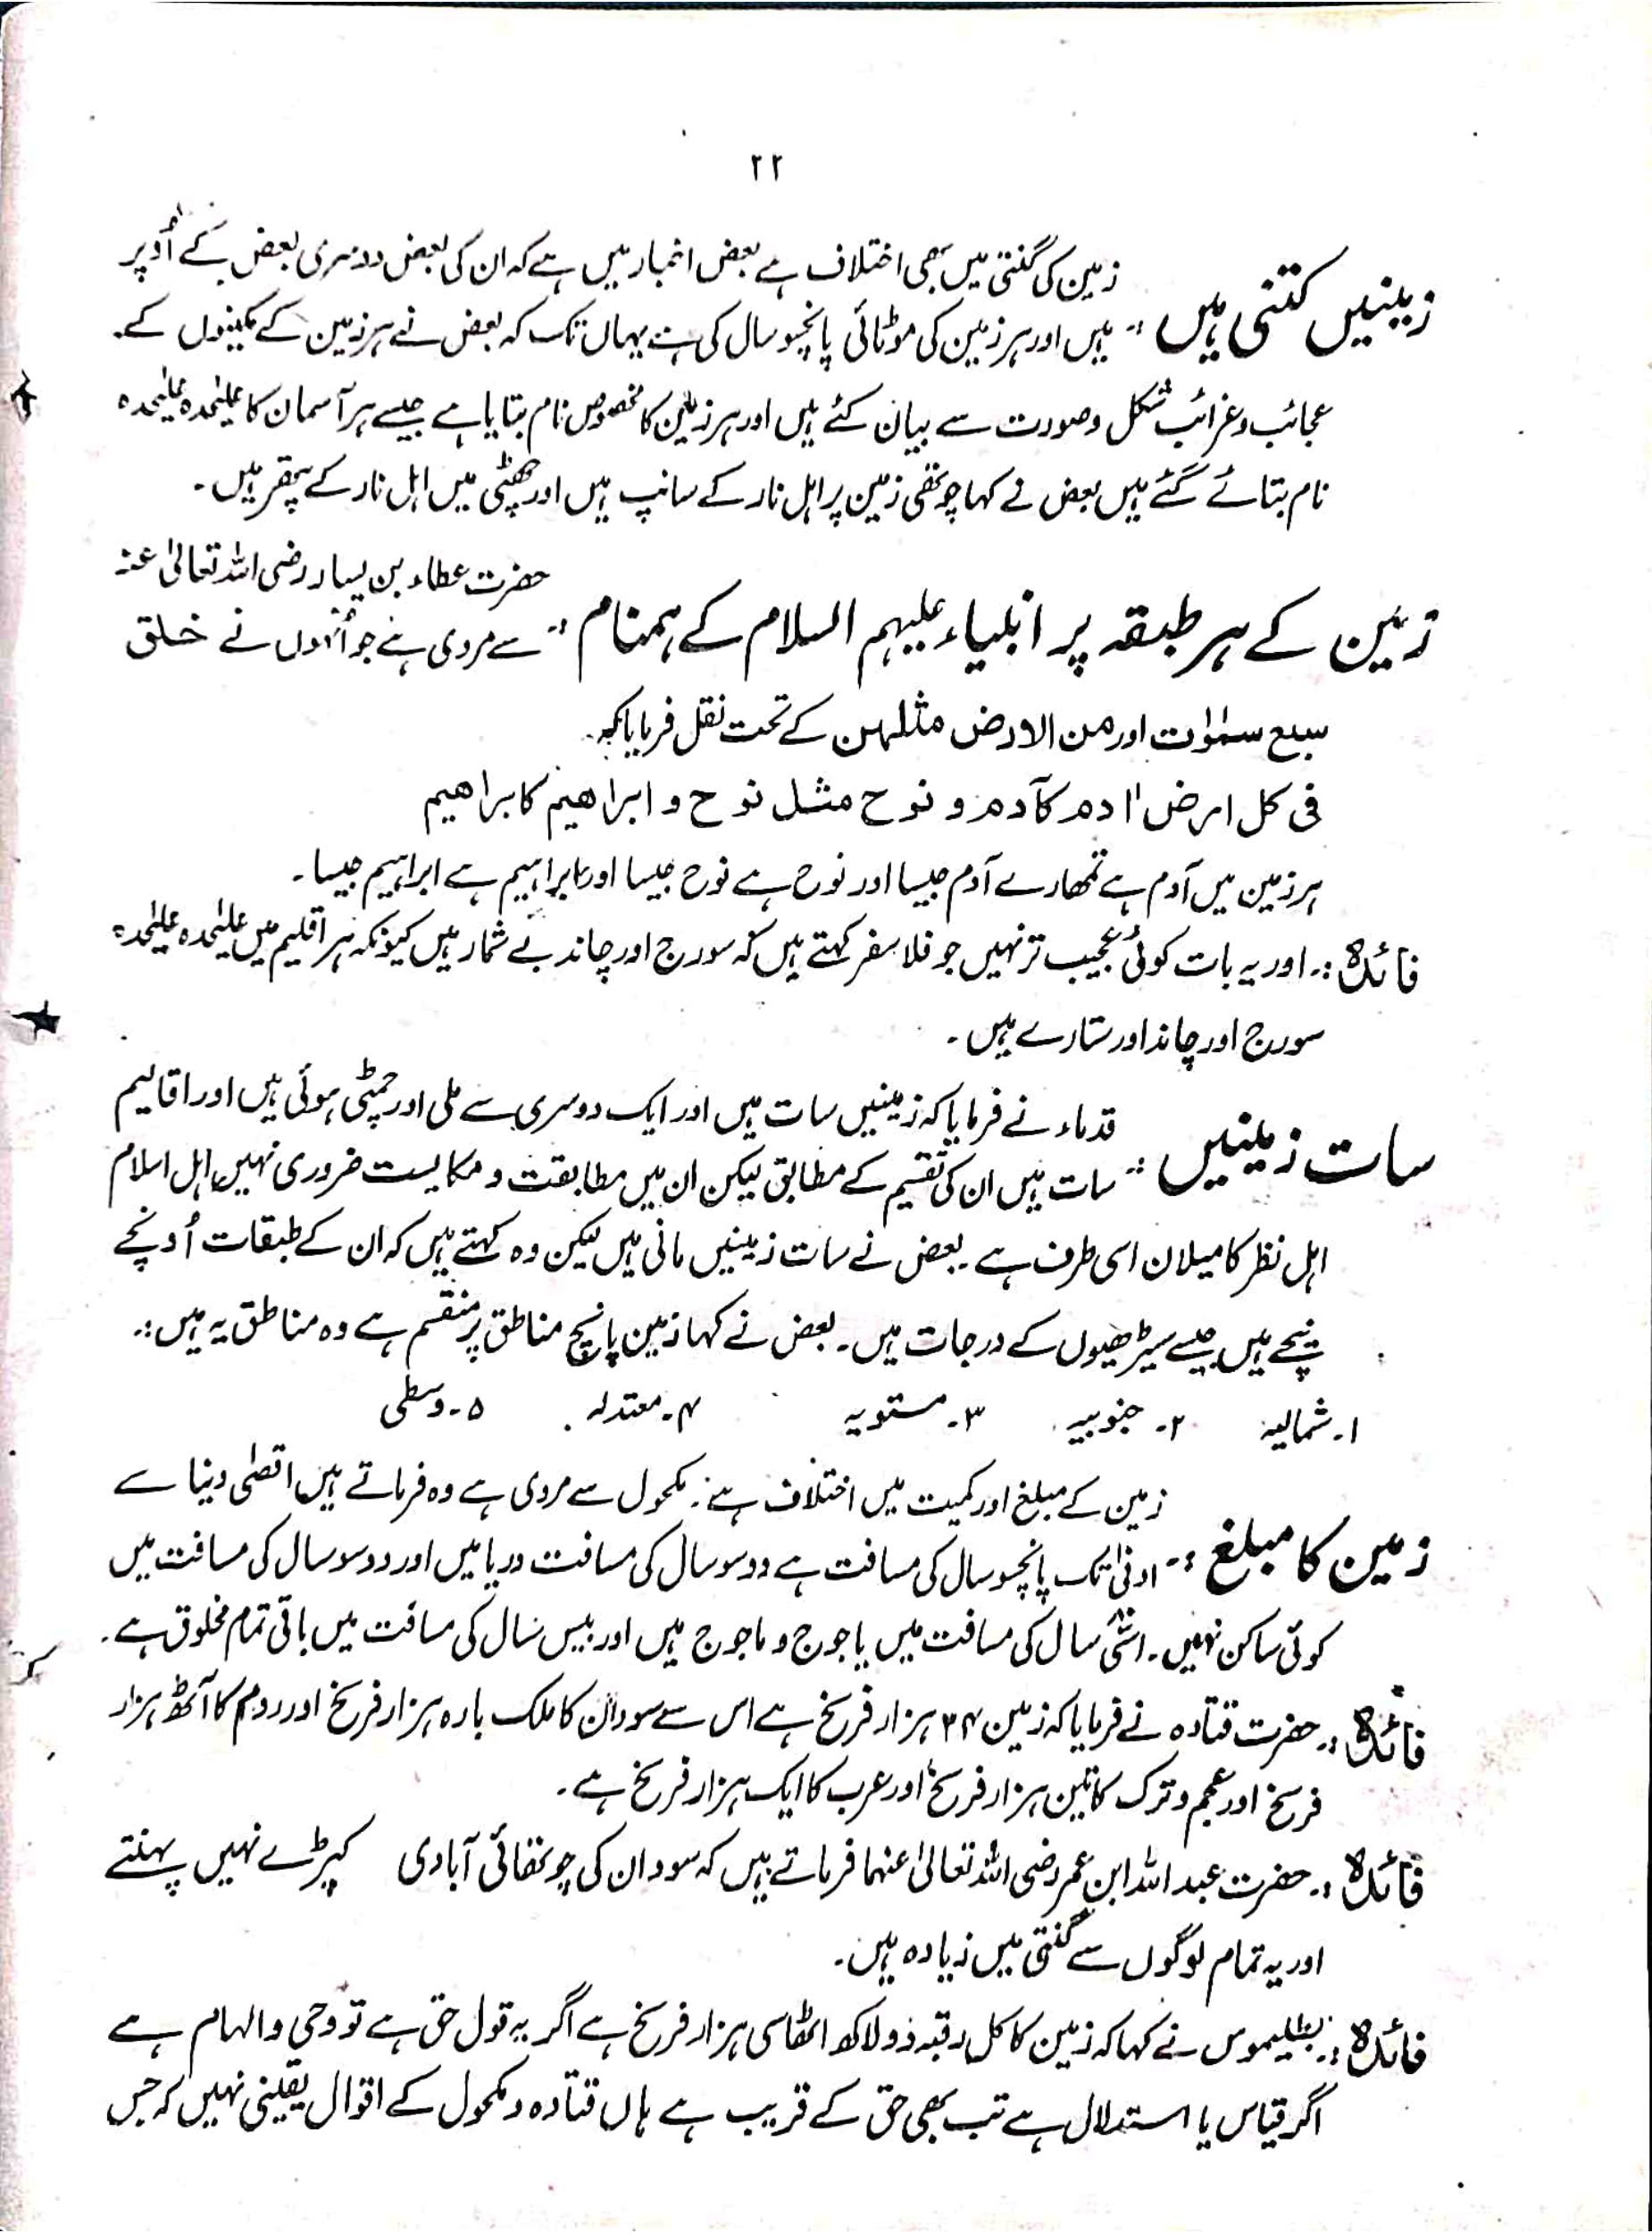 ۲۲
زمینیں کتنی ہیں :- زمین کی گنتی میں بھی اختلاف ہے بعض اخبار میں ہے کہ ان کی بعض دوسری بعض کے اُوپر
ہیں اور ہر زمین کی موٹائی پانچسو سال کی ہے یہاں تک کہ بعض نے ہر زمین کے مکینوں کے
عجائب و غرائب شکل و صورت سے بیان کئے ہیں اور ہر زمین کا مخصوص نام بتایا ہے جیسے ہر آسمان کا علیٰحدہ علیٰحدہ
نام بتائے گئے ہیں بعض نے کہا چوتھی زمین پر اہل نار کے سانپ ہیں اور چھٹی میں اہل نار کے پتھر ہیں۔
زمین کے ہر طبقہ پر انبلیاء علیہم السلام کے ہمنام :- حضرت عطاء بن یسار رضی اللہ تعالیٰ عنہ
سے مروی ہے جو اُنہوں نے خلق
سبع سمٰوٰت اور من الارض مثلہن کے تحت نقل فرمایا کہ
فی کل ارض اٰدم کآدم و نوح مثل نوح و ابراھیم کابراھیم
ہر زمین میں آدم ہے تمھارے آدم جیسا اور نوح ہے نوح جیسا اور ابراہیم ہے ابراہیم جیسا۔
فائدہ :۔ اور یہ بات کوئی عجیب تر نہیں جو فلاسفر کہتے ہیں کہ سورج اور چاند بے شمار ہیں کیونکہ ہر اقلیم میں علیٰحدہ علیٰحدہ
سورج اور چاند اور ستارے ہیں۔
سات زمینیں :- قدماء نے فرمایا کہ زمینیں سات ہیں اور ایک دوسری سے ملی اور چمٹی ہوئی ہیں اور اقالیم
سات ہیں ان کی تقسیم کے مطابق لیکن ان میں مطابقت و مکایست ضروری نہیں، اہل اسلام
اہل نظر کا میلان اسی طرف ہے۔ بعض نے سات زمینیں مانی ہیں لیکن وہ کہتے ہیں کہ ان کے طبقات اُونچے
نیچے ہیں جیسے سیڑھیوں کے درجات ہیں۔ بعض نے کہا زمین پانچ مناطق پر منقسم ہے وہ مناطق یہ ہیں :۔
۱۔ شمالیہ ۲۔ جنوبیہ ۳۔ مستویہ ۴۔ معتدلہ ۵۔ وسطی
زمین کا مبلغ :- زمین کے مبلغ اور کمیت میں اختلاف ہے۔ مکحول سے مروی ہے وہ فرماتے ہیں اقصٰی دنیا سے
ادنٰی تک پانچسو سال کی مسافت ہے دو سو سال کی مسافت دریا ہیں اور دو سو سال کی مسافت میں
کوئی ساکن نہیں۔ اسّی سال کی مسافت میں یاجوج و ماجوج ہیں اور بیس سال کی مسافت میں باقی تمام مخلوق ہے۔
فائدہ :۔ حضرت قتادہ نے فرمایا کہ زمین ۲۴ ہزار فرسخ ہے اس سے سودان کا ملک بارہ ہزار فرسخ اور روم کا آٹھ ہزار
فرسخ اور عجم و ترک کا تین ہزار فرسخ اور عرب کا ایک ہزار فرسخ ہے۔
فائدہ :۔ حضرت عبد اللہ ابن عمر رضی اللہ تعالیٰ عنہما فرماتے ہیں کہ سودان کی چوتھائی آبادی کپڑے نہیں پہنتے
اور یہ تمام لوگوں سے گنتی میں زیادہ ہیں۔
فائدہ :۔ بطلیموس نے کہا کہ زمین کا کل رقبہ دو لاکھ اٹھاسی ہزار فرسخ ہے اگر یہ قول حق ہے تو وحی و الہام ہے
اگر قیاس یا استدلال ہے تب بھی حق کے قریب ہے ہاں قتادہ و مکحول کے اقوال یقینی نہیں کہ جس